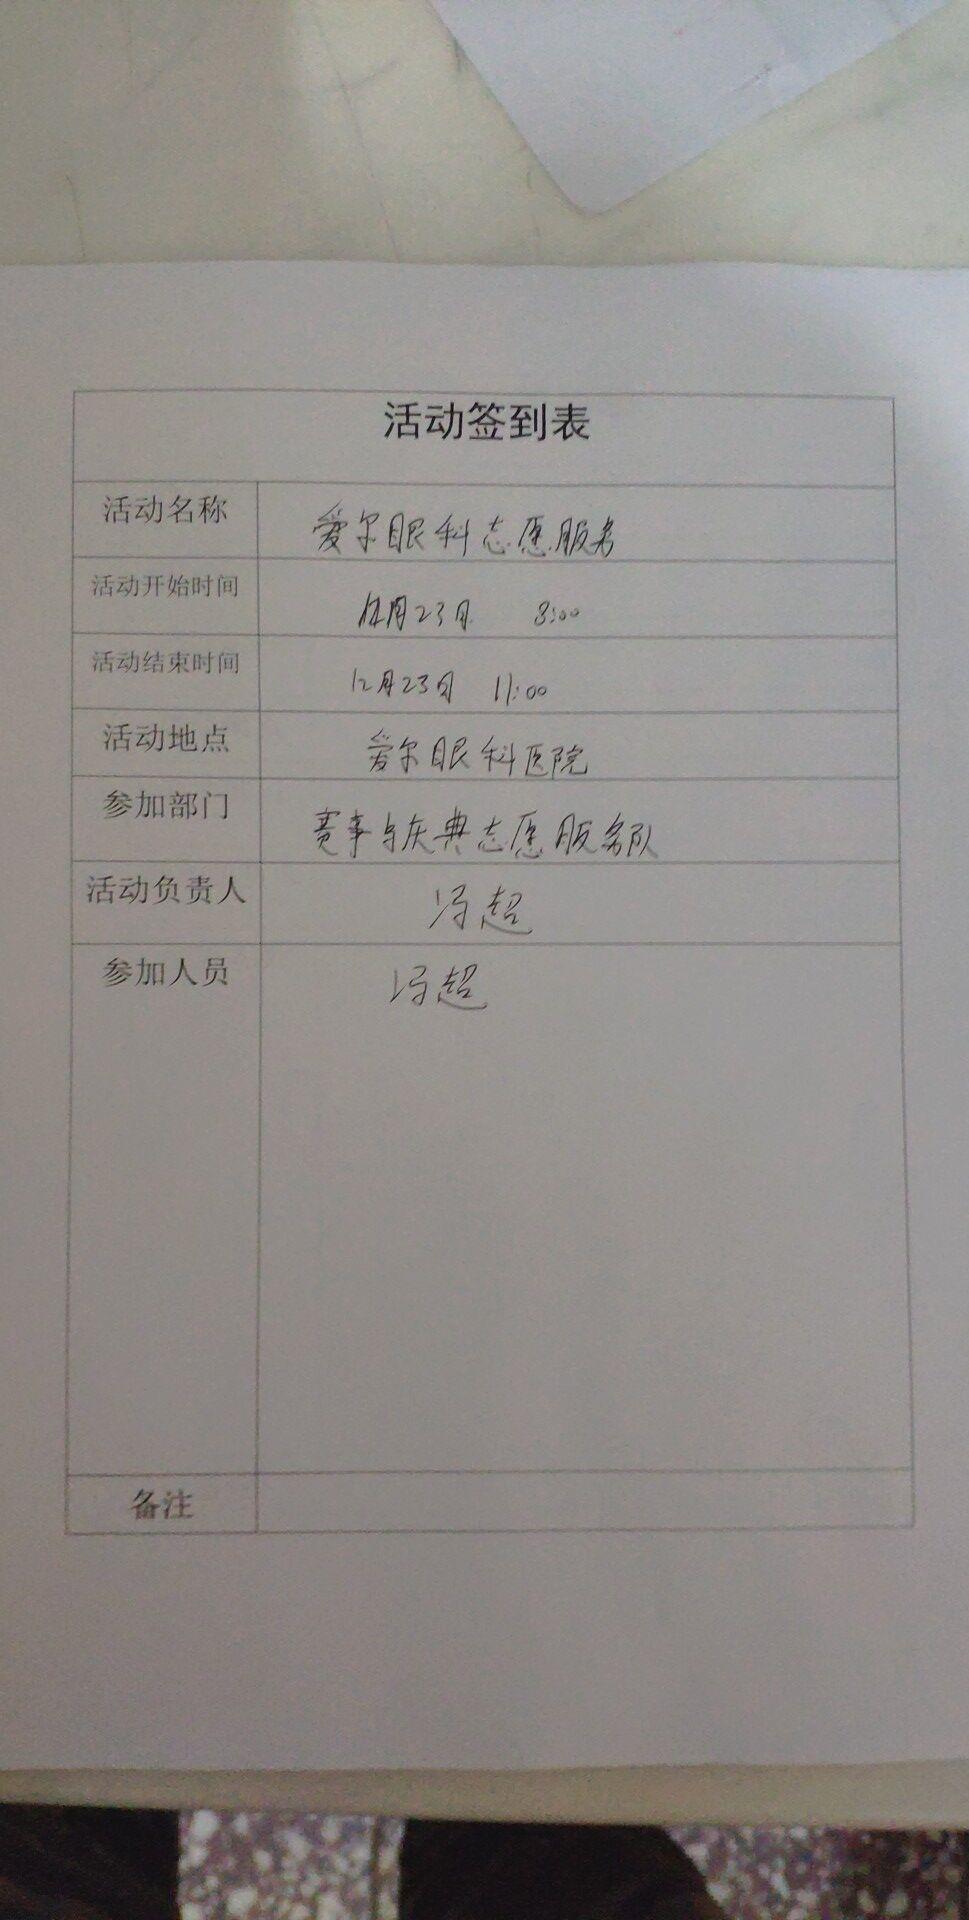 活动签到表
活动名称 爱尔眼科志愿服务
活动开始时间 12月23日 8:00
活动结束时间 12月23日 11:00
活动地点 爱尔眼科医院
参加部门 赛事与庆典志愿服务队
活动负责人 冯超
参加人员 冯超
备注